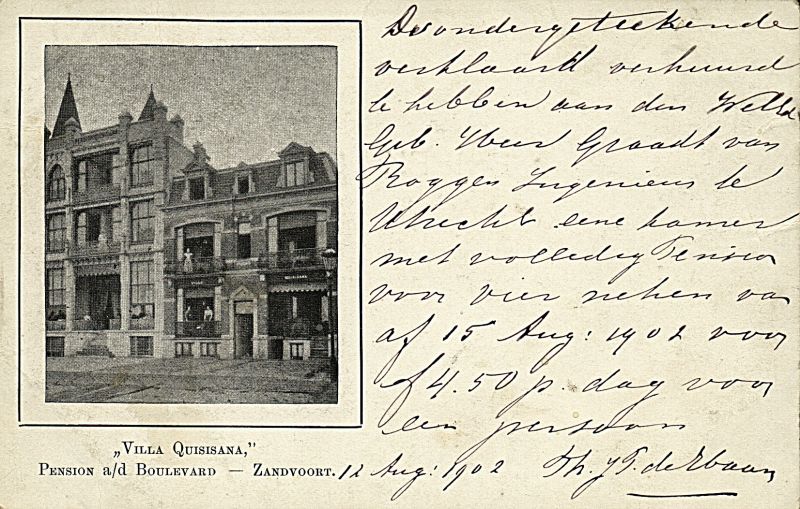 De ondergeteekende
verklaard verhuurd
te hebben aan den Weled
Geb. Heer Graadt van
Roggen Ingenieur te
Utrecht eene kamer
met volledig Pension
voor vier weken van
af 15 Aug: 1902 voor
f 4.50 p. dag voor
een persoon
12 Aug: 1902 Th. J. F. de
„Villa Quisisana,”
Pension a/d Boulevard — Zandvoort.